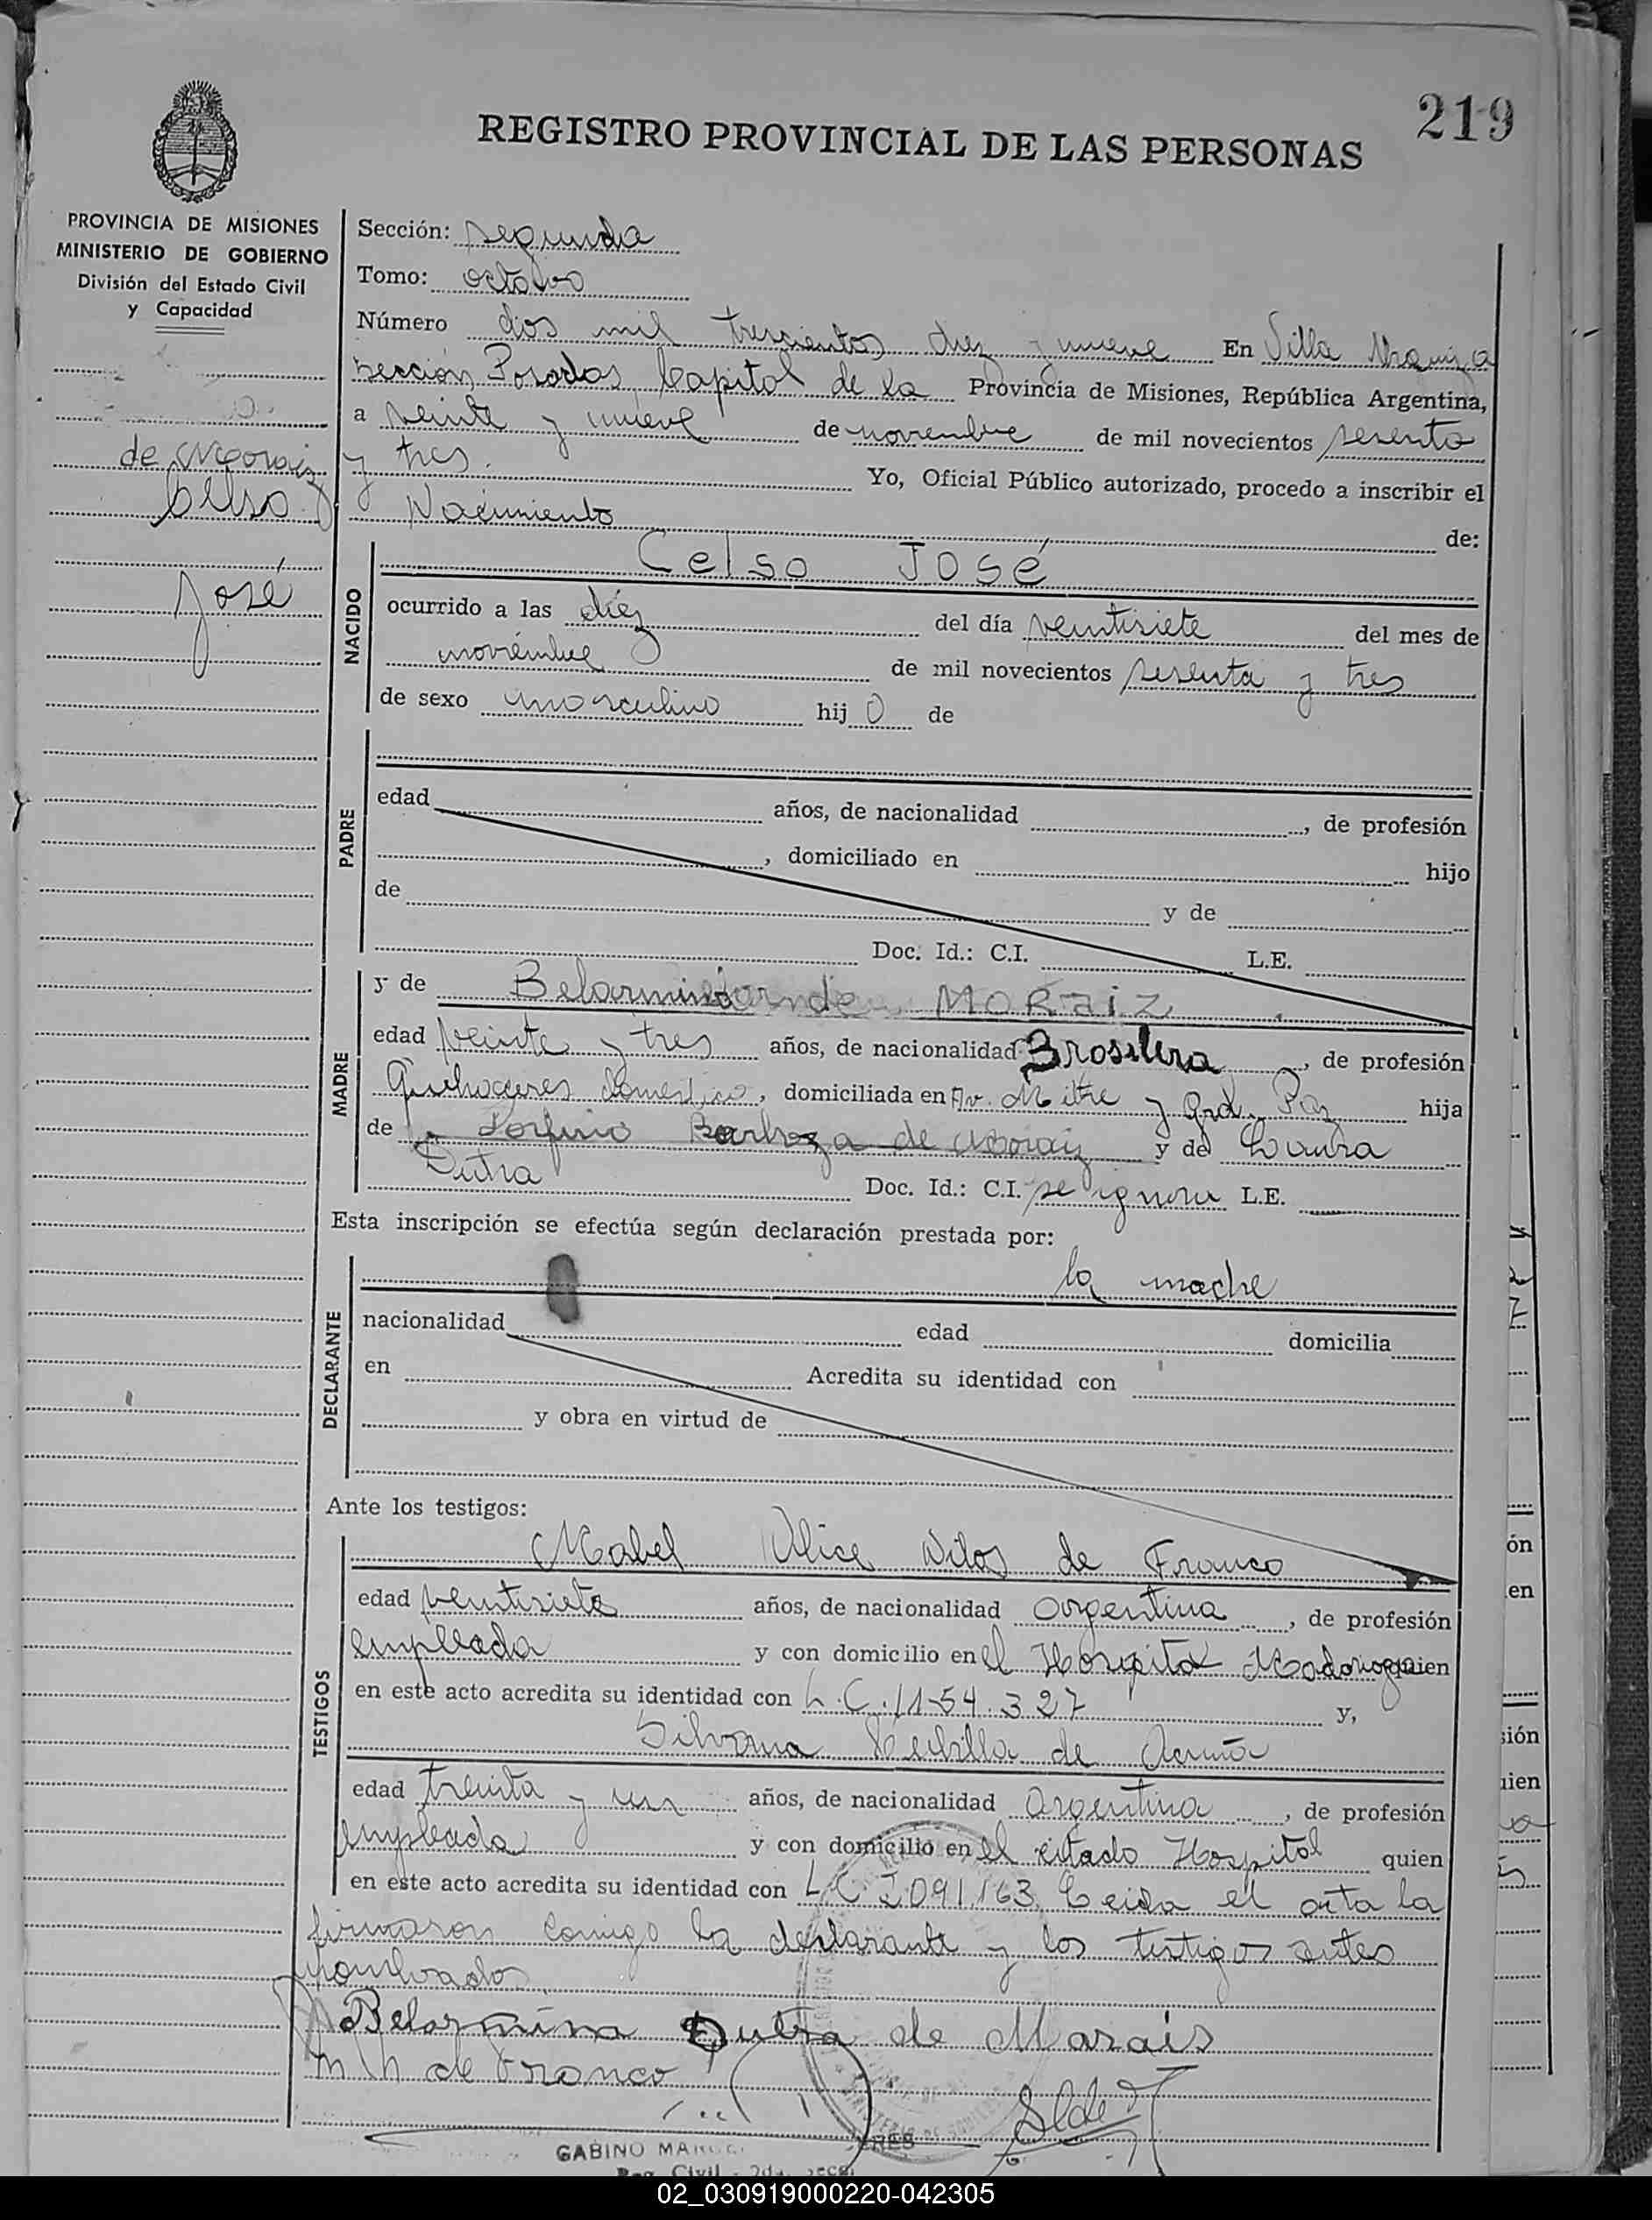 219
REGISTRO PROVINCIAL DE LAS PERSONAS
PROVINCIA DE MISIONES
MINISTERIO DE GOBIERNO
División del Estado Civil
y Capacidad
de Moraiz
Celso
José
Sección: segunda
Tomo: octavo
Número dos mil trescientos diez y nueve En Villa Urquiza
sección Posadas Capital de la Provincia de Misiones, República Argentina,
a veinte y nueve de noviembre de mil novecientos sesenta
y tres. Yo, Oficial Público autorizado, procedo a inscribir el
Nacimiento de:
NACIDO
Celso José
ocurrido a las diez del día veintisiete del mes de
noviembre de mil novecientos sesenta y tres
de sexo masculino hijo de
PADRE
edad años, de nacionalidad , de profesión
, domiciliado en hijo
de y de
Doc. Id.: C.I. L.E.
MADRE
y de Belarmina de MORAIZ
edad veinte y tres años, de nacionalidad Brasilera , de profesión
Quehaceres domestico, domiciliada en Av. Mitre y Gral. Paz hija
de Porfirio Barboza de Moraiz y de Laura
Dutra Doc. Id.: C.I. se ignora L.E.
Esta inscripción se efectúa según declaración prestada por:
DECLARANTE
la madre
nacionalidad edad domicilia
en Acredita su identidad con
y obra en virtud de
Ante los testigos:
TESTIGOS
Mabel Alice de Franco
edad veintisiete años, de nacionalidad argentina, de profesión
empleada y con domicilio en el Hospital Madariaga quien
en este acto acredita su identidad con L.C. 1154.327 y,
Silvana de Acuña
edad treinta y un años, de nacionalidad argentina, de profesión
empleada y con domicilio en el citado Hospital quien
en este acto acredita su identidad con L.C. 2091163 Leida el acta la
firmaron comigo la declarante y los testigos antes
nombrados
Belarmina Dutra de Marais
de Franco
GABINO
Reg. Civil
02_030919000220-042305